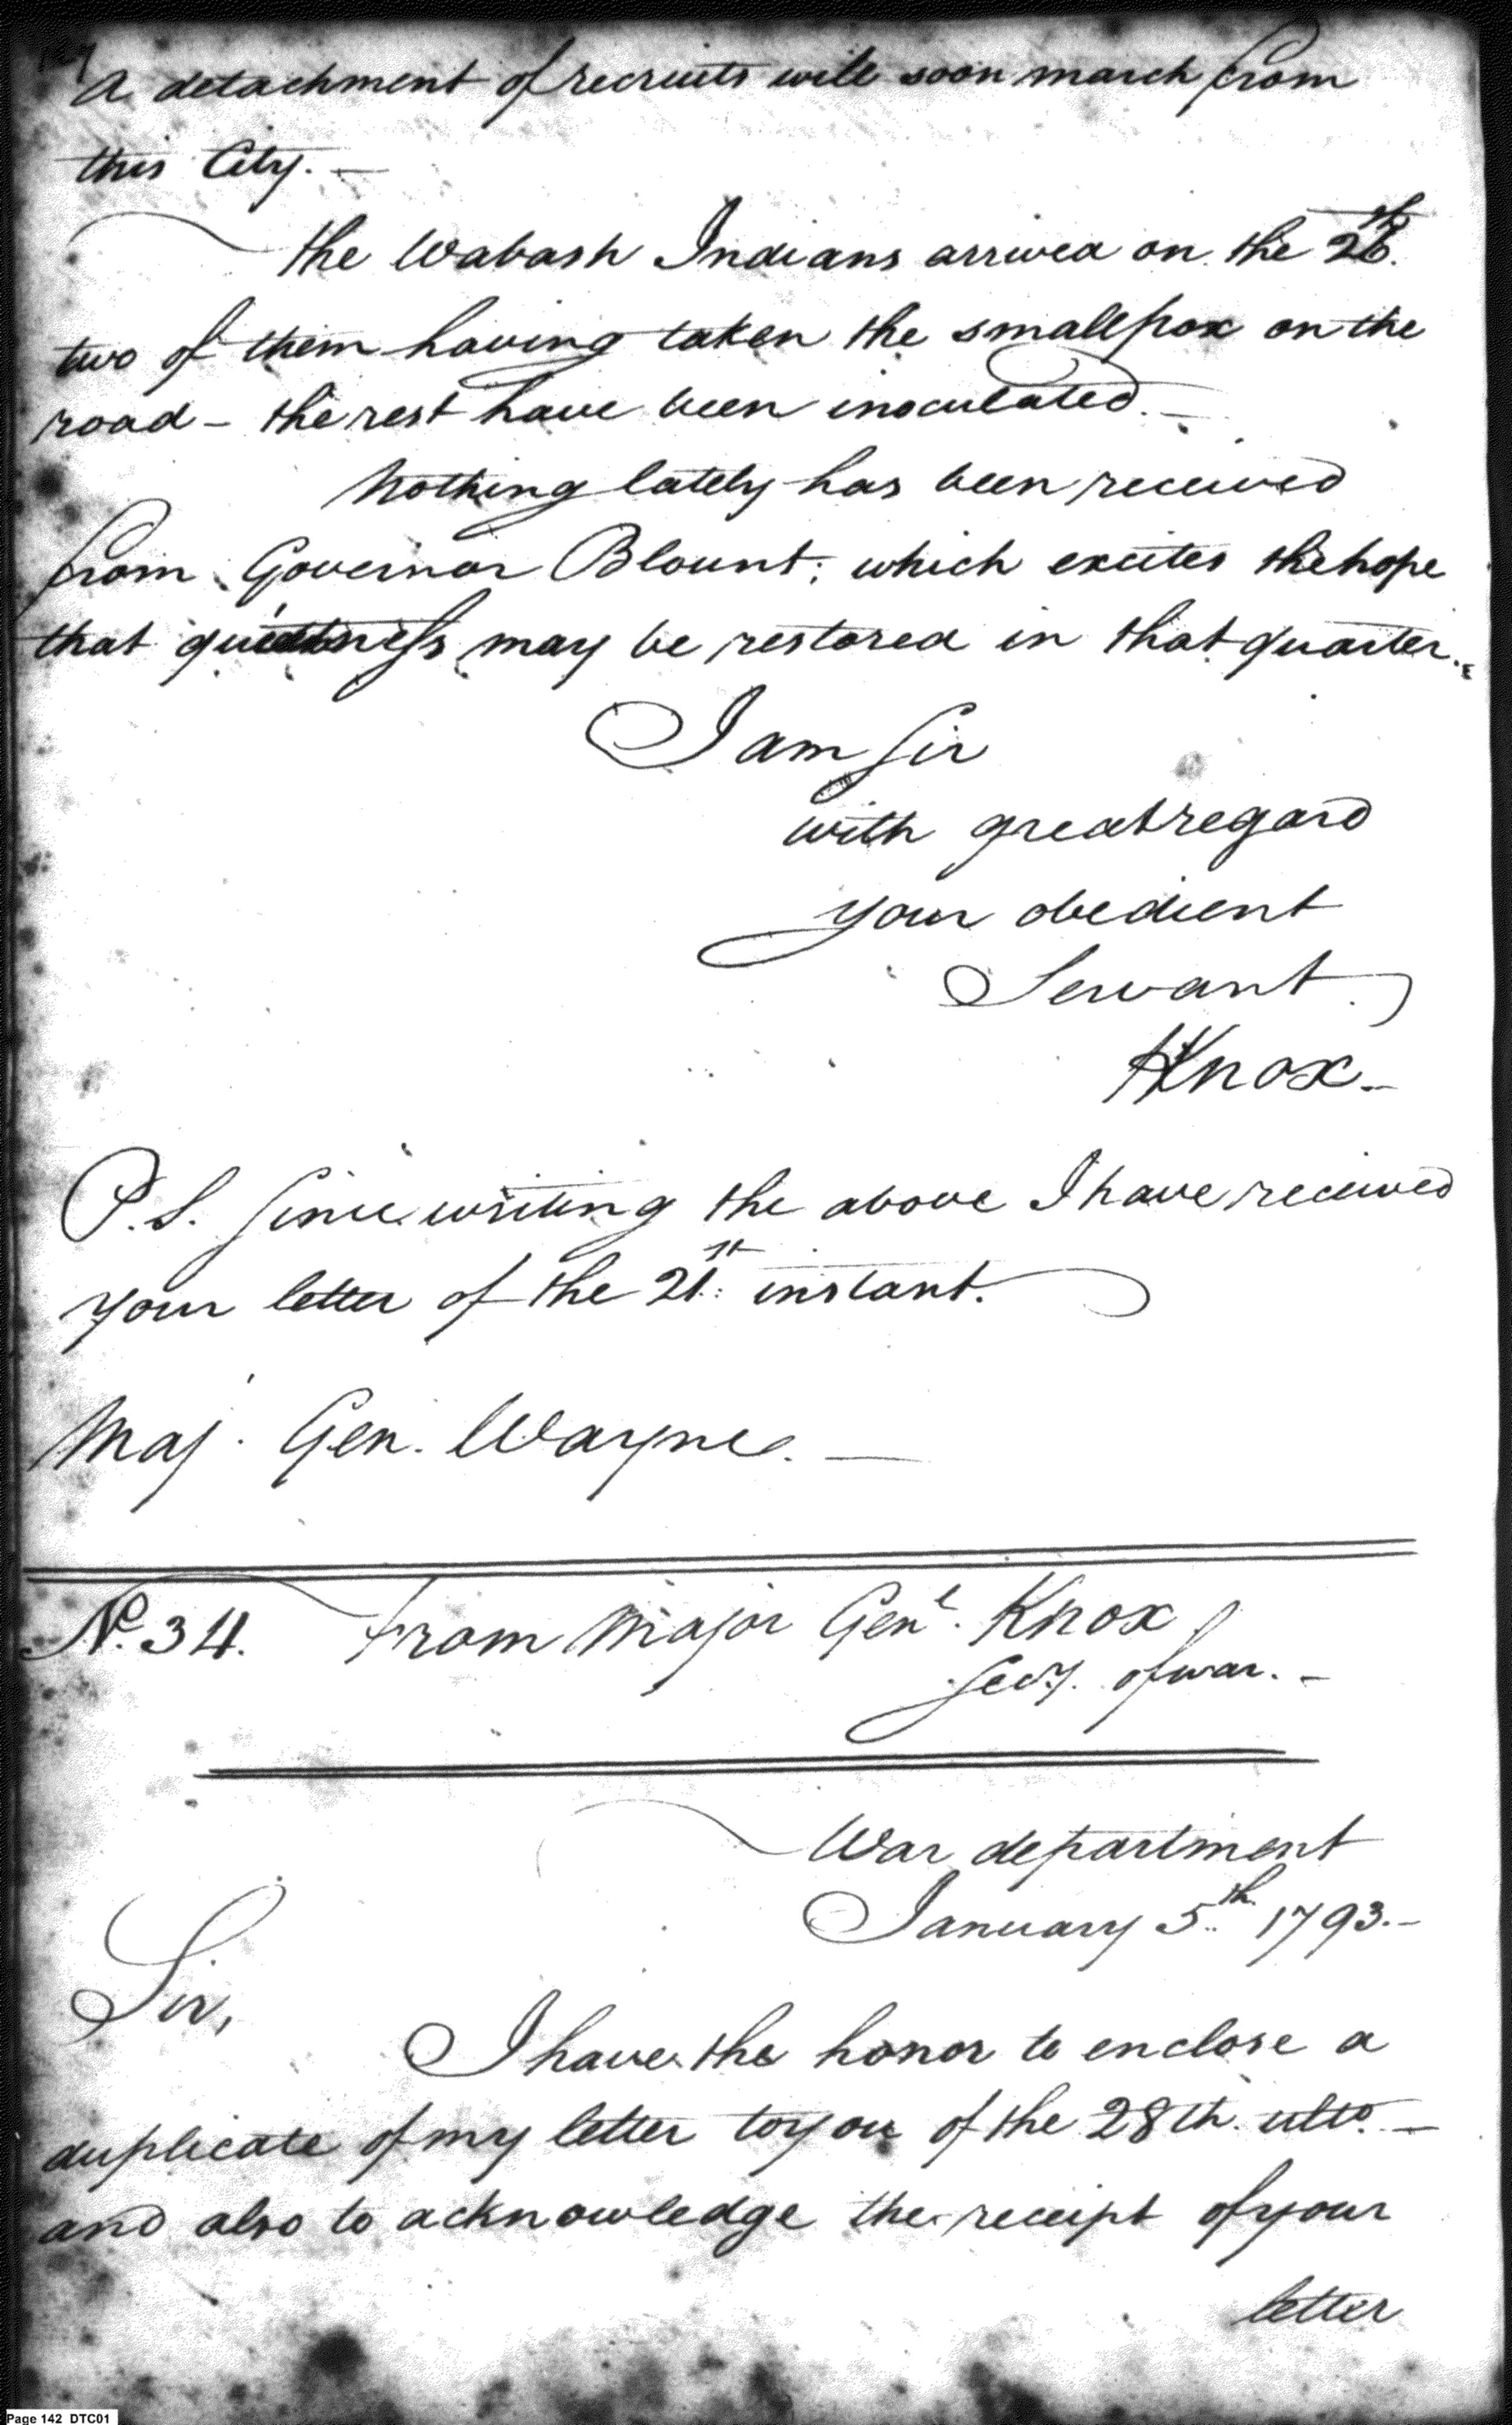 A detachment of recruits will soon march from
this City. —
the Wabash Indians arrived on the 26th.
two of them having taken the smallpox on the
road – the rest have been inoculated. —
Nothing lately has been received
from Governor Blount; which excites the hope
that quietness may be restored in that quarter.
I am Sir
with great regard
your obedient
Servant.
HKnox –
P.S. Since writing the above I have received
your letter of the 21st. instant.
Maj. Gen. Wayne. —
No. 34. From Major Genl. Knox
Secy. of war. –
War department
January 5th. 1793. –
Sir,
I have the honor to enclose a
duplicate of my letter to you of the 28th. ulto. —
and also to acknowledge the receipt of your
letter
Page 142 DTC01